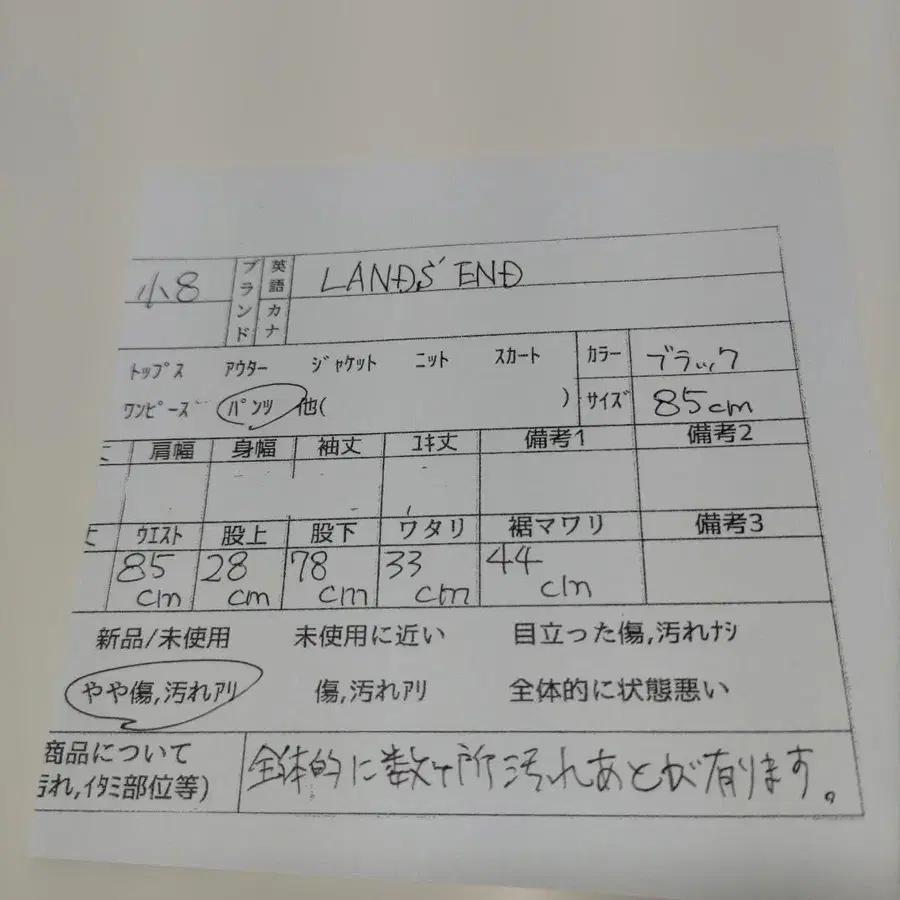 小8 ブランド 英語 LANDS' END
カナ
トップス アウター ジャケット ニット スカート カラー ブラック
ワンピース パンツ 他( ) サイズ 85cm
肩幅 身幅 袖丈 ユキ丈 備考1 備考2
ウエスト 股上 股下 ワタリ 裾マワリ 備考3
85 cm 28 cm 78 cm 33 cm 44 cm
新品/未使用 未使用に近い 目立った傷,汚れナシ
やや傷,汚れアリ 傷,汚れアリ 全体的に状態悪い
商品について 全体的に数ケ所汚れあとが有ります。
汚れ,イタミ部位等)